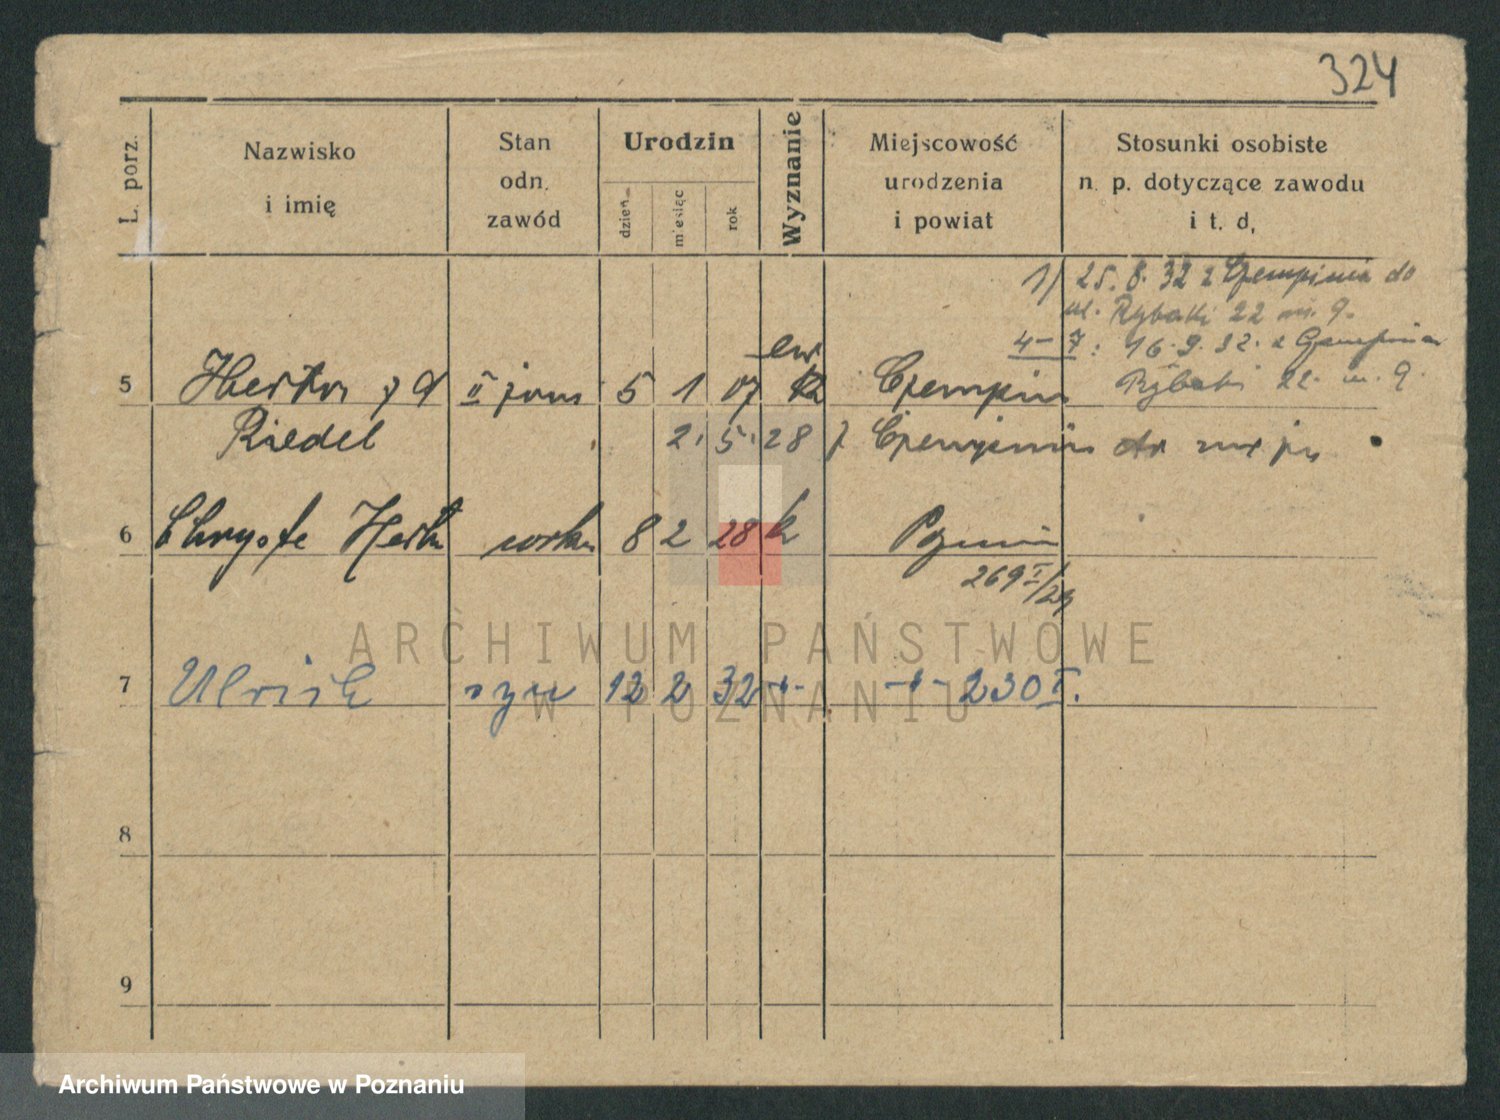 324
L. porz.
Nazwisko
i imię
Stan
odn.
zawód
Urodzin
dzień
miesiąc
rok
Wyznanie
Miejscowość
urodzenia
i powiat
Stosunki osobiste
n. p. dotyczące zawodu
i t. d,
1/ 25. 8. 32 z Czempinia do
ul. Rybaki 22 m. 9.
4-7: 16. 9. 32. z Czempinia
Rybaki 22. m. 9.
ew.
5 Herta z d II żona 5 1 07 k Czempin
Riedel 2. 5. 28 z Czempinia
6 8 2 28 k
269 I/29
7 Ulrich syn 12 2 32 -"- -"- 230 I.
8
9
ARCHIWUM PAŃSTWOWE
W POZNANIU
Archiwum Państwowe w Poznaniu